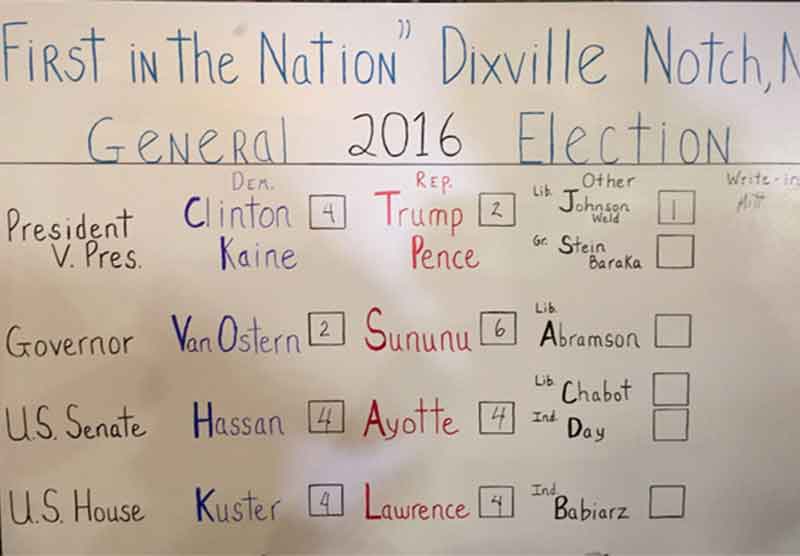 First in the Nation" Dixville Notch, N
General 2016 Election
Dem. Rep. Other Write-in
President Clinton 4 Trump 2 Lib. Johnson 1
Weld
V. Pres. Kaine Pence Gr. Stein
Baraka
Lib.
Governor Van Ostern 2 Sununu 6 Abramson
Lib. Chabot
U.S. Senate Hassan 4 Ayotte 4 Ind. Day
U.S. House Kuster 4 Lawrence 4 Ind. Babiarz